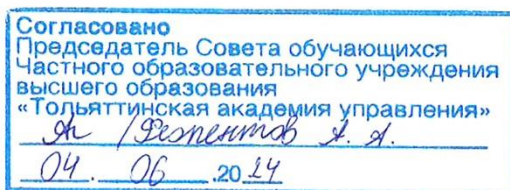 Согласовано
Председатель Совета обучающихся
Частного образовательного учреждения
высшего образования
«Тольяттинская академия управления»
А. А.
04.06.2024